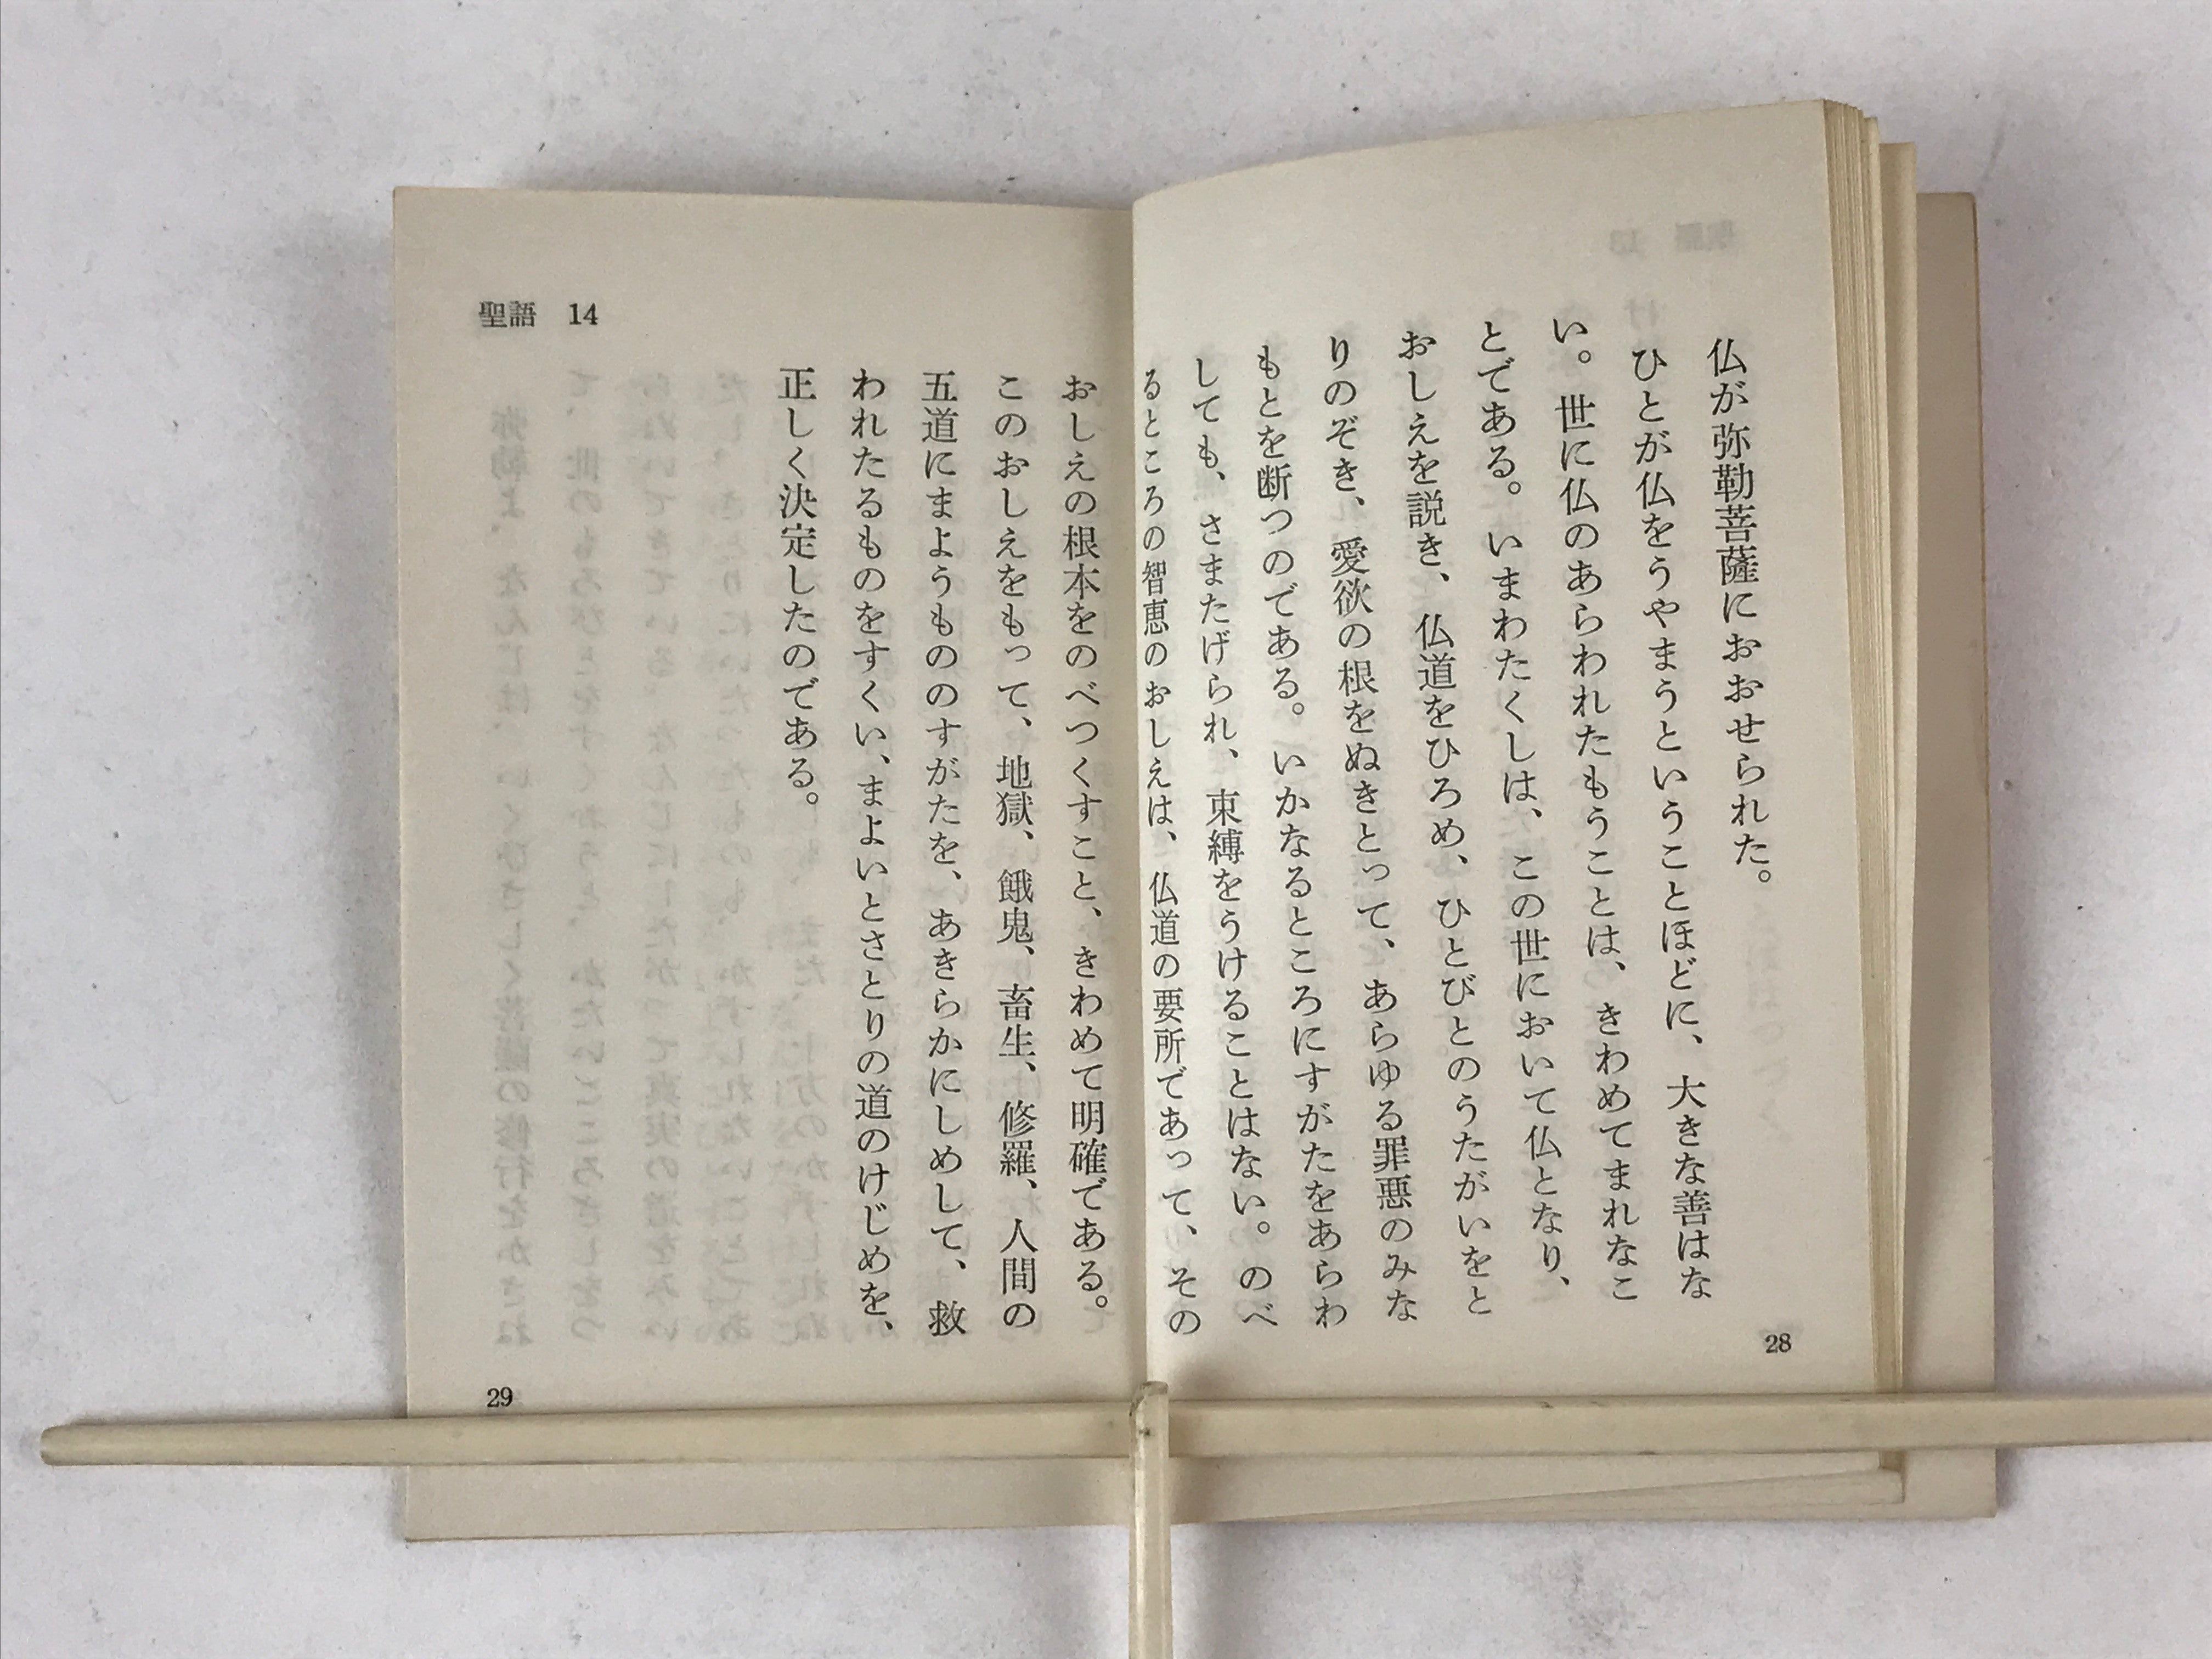 仏が弥勒菩薩におおせられた。
ひとが仏をうやまうということほどに、大きな善はな
い。世に仏のあらわれたもうことは、きわめてまれなこ
とである。いまわたくしは、この世において仏となり、
おしえを説き、仏道をひろめ、ひとびとのうたがいをと
りのぞき、愛欲の根をぬきとって、あらゆる罪悪のみな
もとを断つのである。いかなるところにすがたをあらわ
しても、さまたげられ、束縛をうけることはない。のべ
るところの智恵のおしえは、仏道の要所であって、その
28
聖語 14
おしえの根本をのべつくすこと、きわめて明確である。
このおしえをもって、地獄、餓鬼、畜生、修羅、人間の
五道にまようもののすがたを、あきらかにしめして、救
われたるものをすくい、まよいとさとりの道のけじめを、
正しく決定したのである。
29